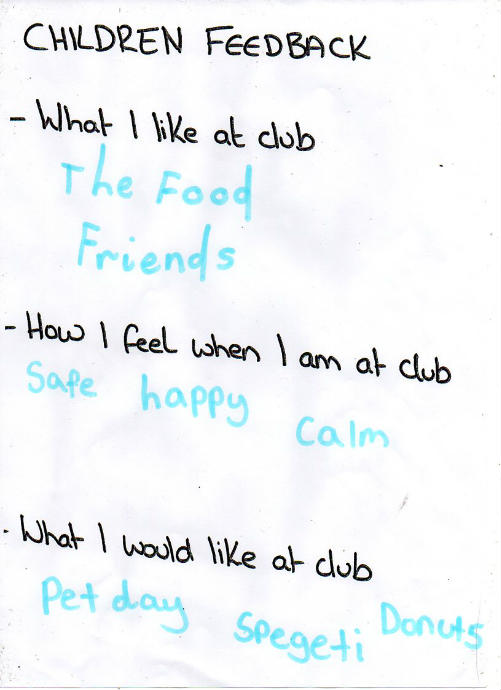 CHILDREN FEEDBACK
- What I like at club
The Food
Friends
- How I feel when I am at club
Safe happy Calm
- What I would like at club
Pet day Spegeti Donuts